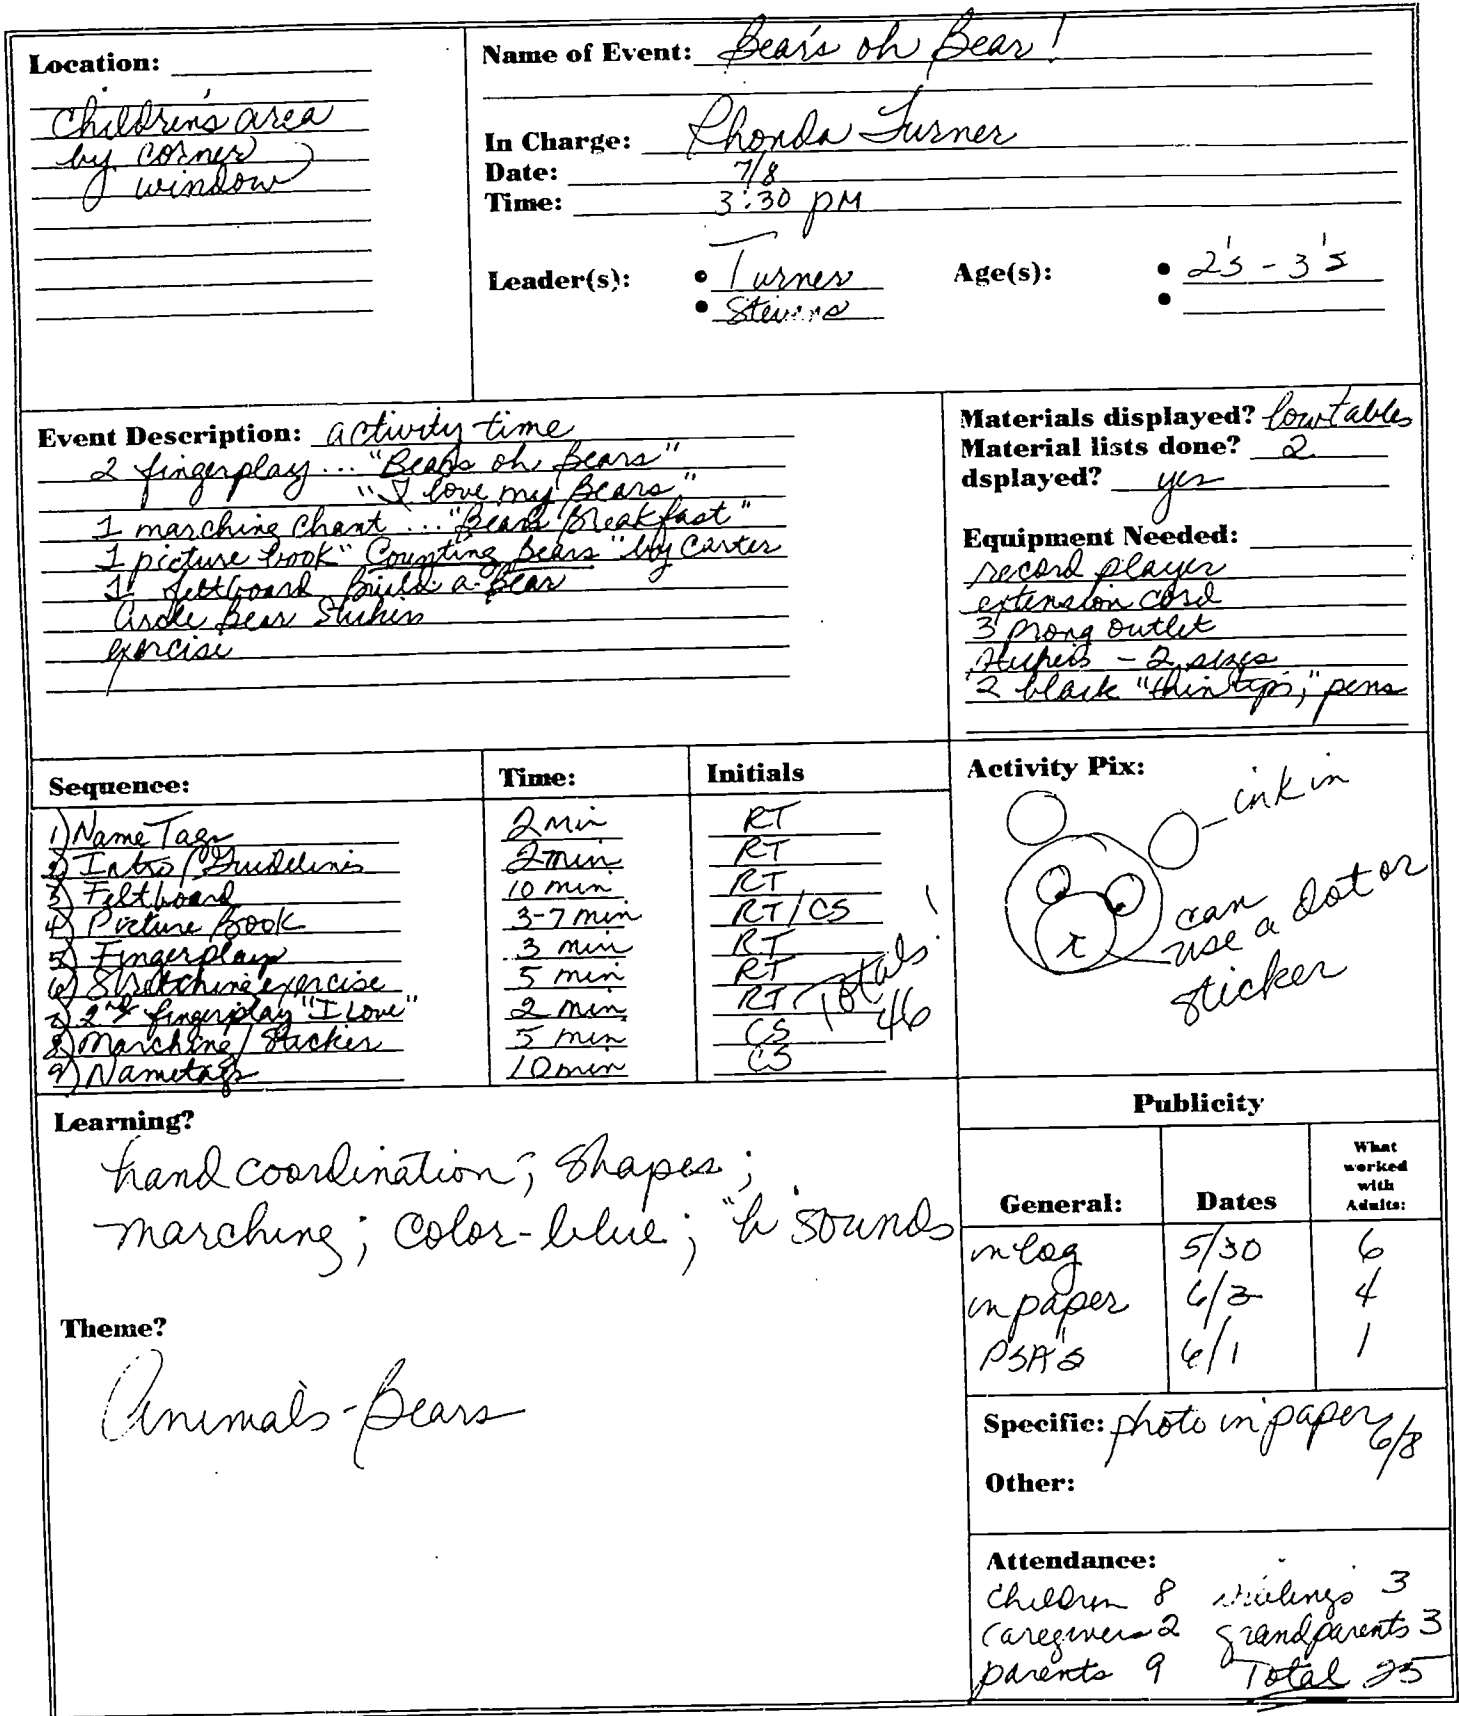 Location:
Children's area
by corner
window
Name of Event: Bear's oh Bear!
In Charge: Rhonda Turner
Date: 7/8
Time: 3:30 PM
Leader(s): • Turner
• Stevens
Age(s): • 2's - 3's
•
Event Description: activity time
2 fingerplay ... "Bears oh Bears"
"I love my Bears"
1 marching chant ... "Bears Breakfast"
1 picture book "Counting Bears" by Carter
1 feltboard Build-a-Bear
Circle Bear Stickers
exercise
Materials displayed? low tables
Material lists done? 2
dsplayed? yes
Equipment Needed:
record player
extension cord
3 prong outlet
stickers - 2 sizes
2 black "thin tips," pens
Sequence: Time: Initials
1) Name Tags 2 min RT
2) Intro / Guidelines 2 min RT
3) Feltboard 10 min RT
4) Picture Book 3-7 min RT/CS
5) Fingerplay 3 min RT
6) Stretching exercise 5 min RT
7) 2nd fingerplay "I Love" 2 min RT
8) Marching / Sticker 5 min CS
9) Nametags 10 min CS
Totals!
46
Activity Pix:
ink in
can
use a dot or
sticker
Learning?
hand coordination; shapes;
marching; color-blue; "b" sounds
Theme?
Animals-Bears
Publicity
General: Dates What worked with Adults:
in log 5/30 6
in paper 6/3 4
PSA's 6/1 1
Specific: photo in paper 6/8
Other:
Attendance:
Children 8 siblings 3
Caregivers 2 grandparents 3
parents 9 Total 25